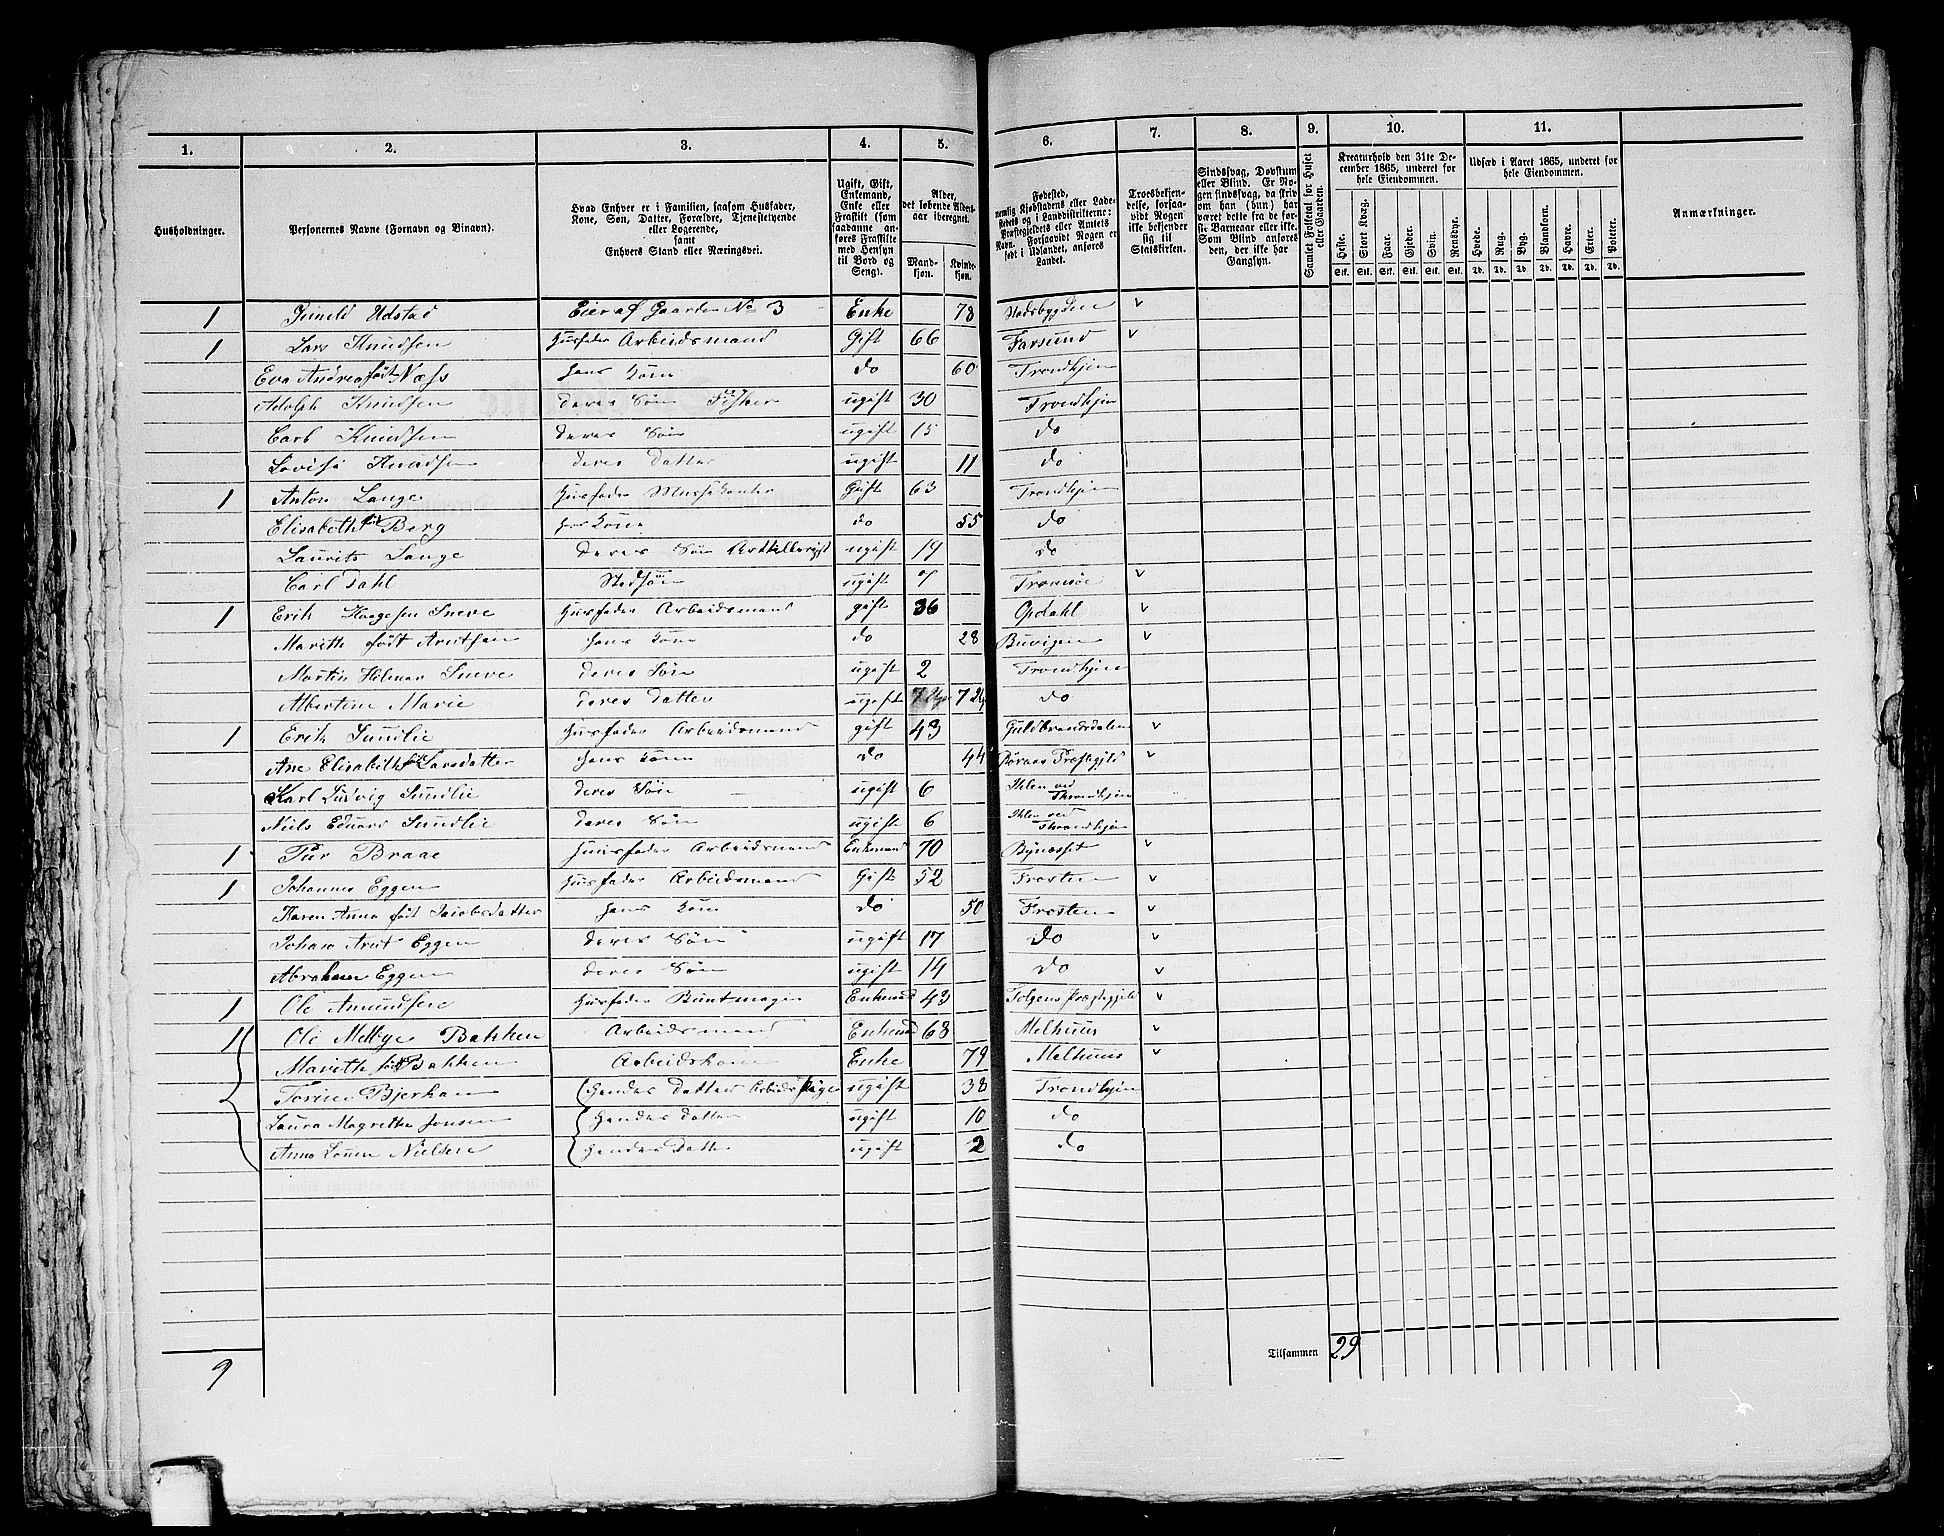 1. 2. 3. 4. 5. 6. 7. 8. 9. 10. 11.
Husholdninger.
Personernes Navne (Fornavn og Binavn).
Hvad Enhver er i Familien, saasom Husfader, Kone, Søn, Datter, Forældre, Tjenestetyende eller Logerende, samt Enhvers Stand eller Næringsvei.
Ugift, Gift, Enkemand, Enke eller Fraskilt (som saadanne anføres Fraskilte med Hensyn til Bord og Seng).
Alder, det løbende Alders-aar iberegnet.
Mandkjøn. Kvindekjøn.
Fødested, nemlig Kjøbstadens eller Ladestedets og i Landdistrikterne: Præstegjeldets eller Amtets Navn. Forsaavidt Nogen er født i Udlandet, anføres Landet.
Troesbekjendelse, forsaavidt Nogen ikke bekjender sig til Statskirken.
Sindssvag, Døvstum eller Blind. Er Nogen sindssvag, da skrives om han (hun) har været dette fra de første Barneaar eller ikke. Som Blind anføres den, der ikke har Gangsyn.
Samlet Folketal for Huset eller Gaarden.
Kreaturhold den 31te December 1865, underet for hele Eiendommen.
Heste. Stort Kvæg. Faar. Gjeder. Svin. Rensdyr.
Stk. Stk. Stk. Stk. Stk. Stk.
Udsæd i Aaret 1865, underet for hele Eiendommen.
Hvede. Rug. Byg. Blandkorn. Havre. Erter. Poteter.
Td. Td. Td. Td. Td. Td. Td.
Anmærkninger.
1 Gunild Udstad Eier af Gaarden No 3 Enke 78 Stadsbygden v
1 Lars Knudsen Husfader Arbeidsmand Gift 66 Farsund v
Eva Andrea født Næss Hans Kone do 60 Trondhjem
Adolph Knudsen deres Søn Fisker ugift 30 Trondhjem
Carl Knudsen deres Søn ugift 15 do
Lovise Knudsen deres Datter ugift 11 do
1 Anton Lange Husfader Gift 63 Trondhjem
Elisabeth født Berg Hs Kone do 55 do
Laurits Lange deres Søn ugift 19 do
Carl Dahl Stedsøn ugift 7 Tromsøe v
1 Erik Haagesen Sneve Husfader Arbeidsmand gift 36 Opdahl v
Marith født Arntsen Hans Kone do 28 Buvigen v
Martin Hilmar Sneve deres Søn ugift 2 Trondhjem
Albertine Marie deres Datter ugift do
1 Erik Sundlie Husfader Arbeidsmand gift 43 Guldbrandsdalen v
Ane Elisabeth født Larsdatter Hans Kone do 44 Røraas Præstgjeld v
Karl Ludvig Sundlie deres Søn ugift 6 Ihlen ved Throndhjem
Niels Eduard Sundlie deres Søn ugift 6 Ihlen ved Throndhjem
1 Per Braae Huusfader Arbeidsmand Enkemand 70 Bynæsset v
1 Johannes Eggen Husfader Arbeidsmand Gift 52 Frosten v
Karen Anna født Jacobsdatter Hans Kone do 50 Frosten v
Johan Arnt Eggen deres Søn ugift 17 do v
Abraham Eggen deres Søn ugift 14 do v
1 Ole Amundsen Husfader Buntmager Enkemd 43 Tolgens Præstgjeld v
1 Ole Melbye Bakken Arbeidsmand Enkemd 68 Melhuus v
Marith født Bakken Arbeidskone Enke 79 Melhuus v
Torine Bjerkan Hendes Datter Arbeidspige ugift 38 Trondhjem
Laura Magrethe Jensen Hendes Datter ugift 10 do
Anna Nielsen Hendes Datter ugift 2 do
9 Tilsammen 29